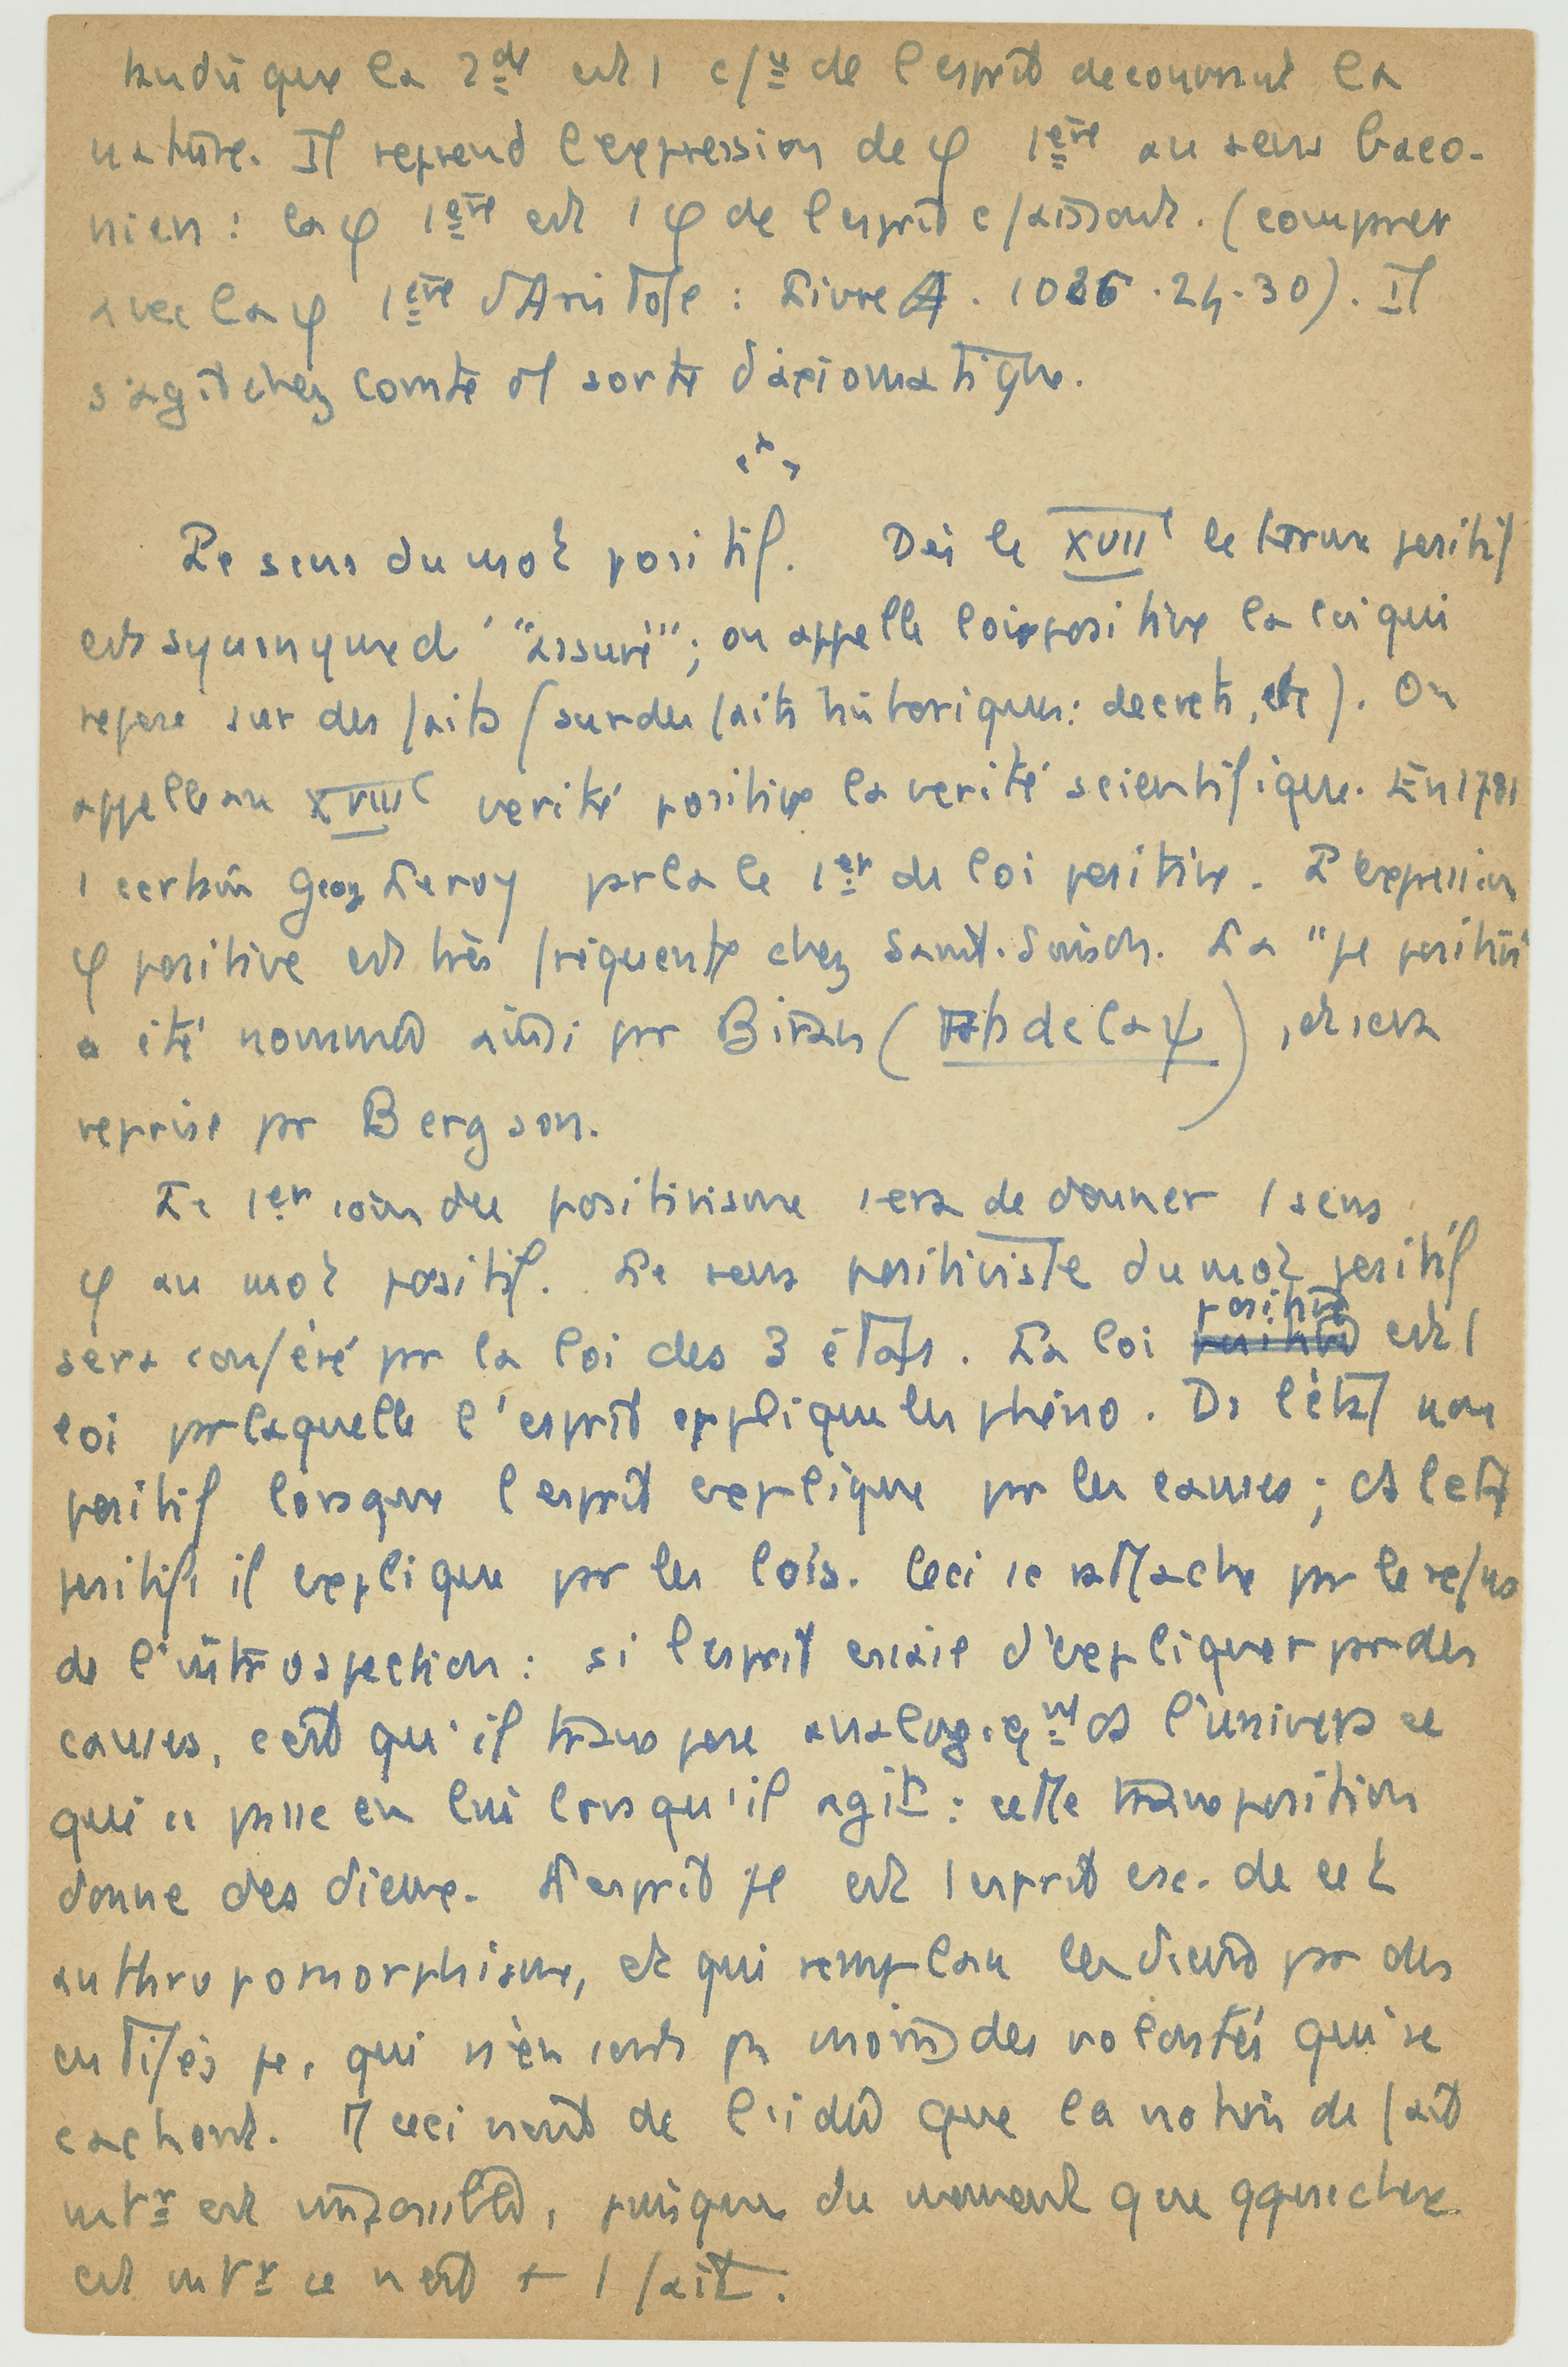 tandis que la 2de est 1 c/ce de l'esprit decouvrant la
nature. Il reprend l'expression de φ 1ère au sens baco-
nien : la φ 1ère est 1 φ de l'esprit c/aissant. (comparer
avec la φ 1ère d'Aristote : Livre . 1026 . 24-30). Il
s'agit chez Comte d'1 sorte d'axiomatique.
Le sens du mot positif. Dès le XVIIe le terme positif
est synonyme d' "assuré" ; on appelle loi positive la loi qui
repose sur des faits (sur des faits historiques : decrets, etc). On
appelle au XVIIIe verité positive la verité scientifique. En 1781
1 certain Leroy parla le 1er de loi positive. L'expression
φ positive est très fréquente chez Saint-Simon. La "
a été nommée ainsi par Biran (Rapts de la ψ), et sera
reprise par Bergson.
Le 1er soin du positivisme sera de donner 1 sens
φ au mot positif. Le sens positiviste du mot positif
sera conféré par la loi des 3 états. La loi positive est 1
loi par laquelle l'esprit explique les phéno. Ds l'état non
positif lorsque l'esprit explique par les causes ; ds l'état
positif, il explique par les lois. Ceci se rattache par le refus
de l'introspection : si l'esprit essaie d'expliquer par des
causes, c'est qu'il transpose analogiqnt ds l'univers ce
qui se passe en lui lorsqu'il agit : cette transposition
donne des dieux. L'esprit est 1 esprit de cet
anthropomorphisme, et qui remplace les dieux par des
entités , qui n'en sont pas moins des volontés qui se
cachent. Tt ceci vient de l'idée que la notion de fait
est impossible, puisque du moment que qquechose
est ce n'est + 1 fait.